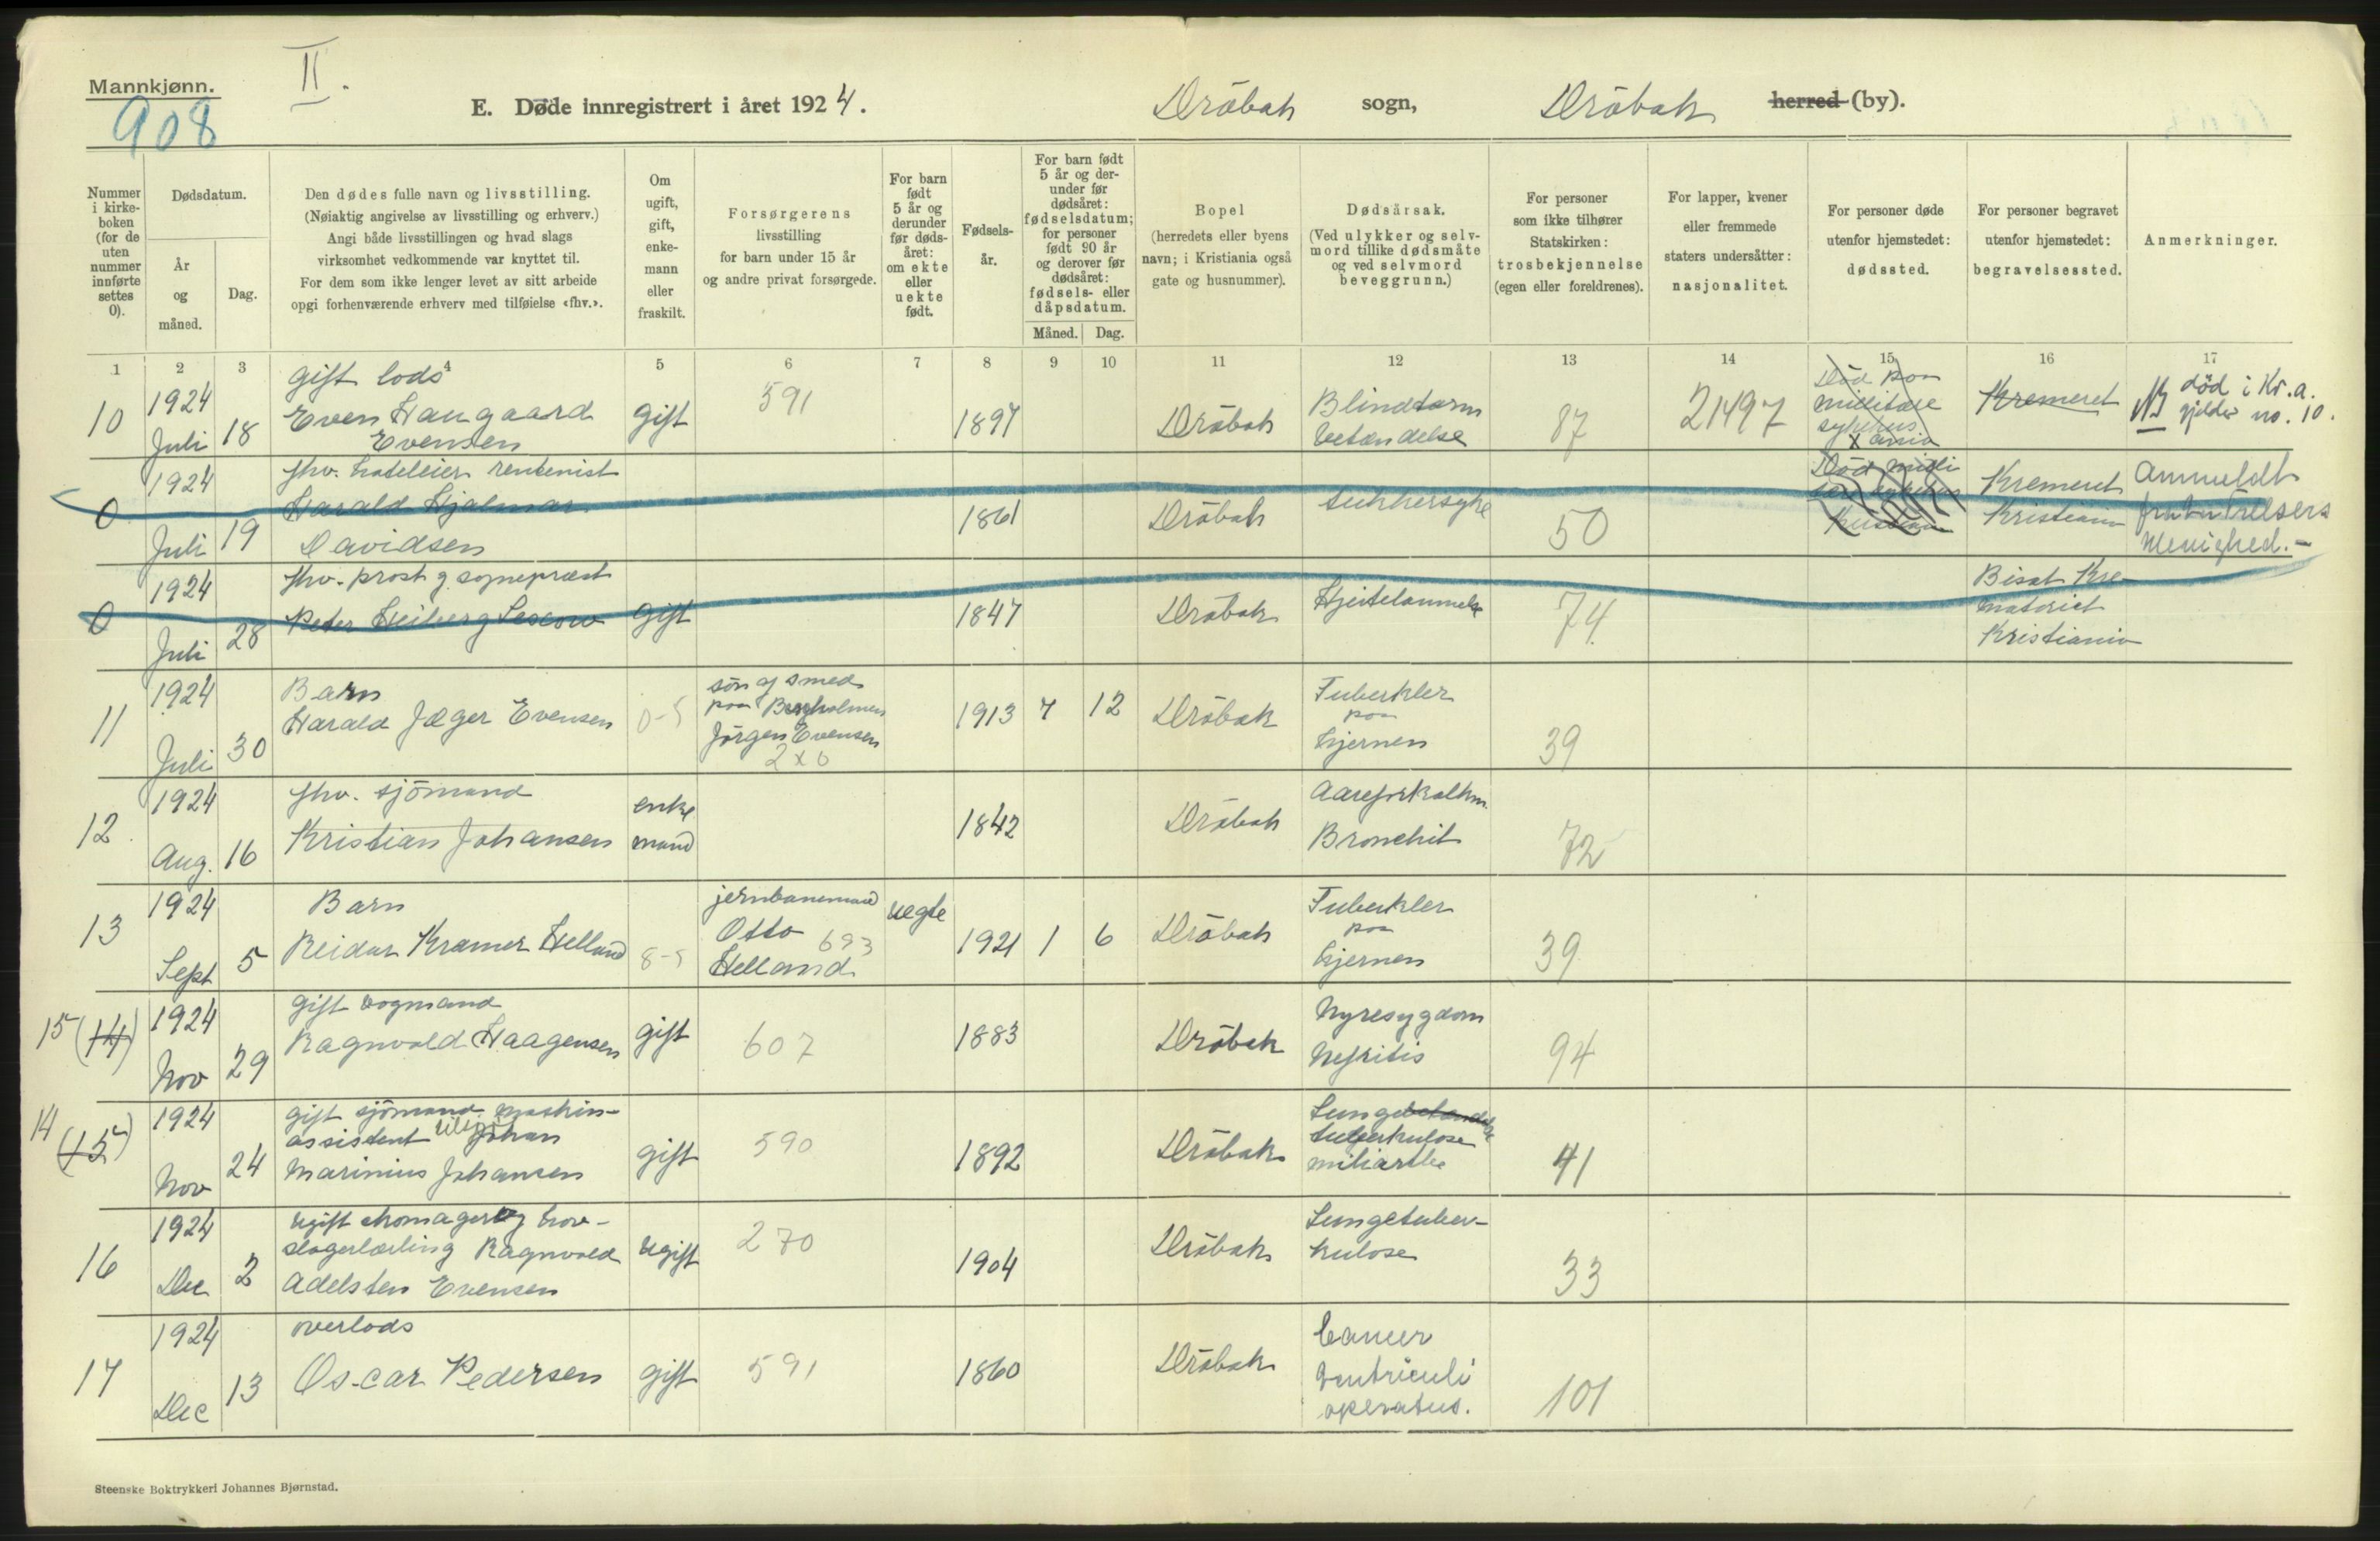 Mannkjønn.
II.
908
E. Døde innregistrert i året 1924.
Dröbak sogn,
Dröbak herred (by).
Nummer i kirke-boken (for de uten nummer innførte settes 0).
Dødsdatum.
År og måned.
Dag.
Den dødes fulle navn og livsstilling.
(Nøiaktig angivelse av livsstilling og erhverv.)
Angi både livsstillingen og hvad slags
virksomhet vedkommende var knyttet til.
For dem som ikke lenger levet av sitt arbeide
opgi forhenværende erhverv med tilføielse «fhv.».
Om ugift, gift, enke-mann eller fraskilt.
Forsørgerens
livsstilling
for barn under 15 år
og andre privat forsørgede.
For barn født 5 år og derunder før døds-året: om ekte eller uekte født.
Fødsels-år.
For barn født 5 år og der-under før dødsåret: fødselsdatum; for personer født 90 år og derover før dødsåret: fødsels- eller dåpsdatum.
Måned. Dag.
Bopel
(herredets eller byens
navn; i Kristiania også
gate og husnummer).
Dødsårsak.
(Ved ulykker og selv-
mord tillike dødsmåte
og ved selvmord
beveggrunn.)
For personer
som ikke tilhører
Statskirken:
trosbekjennelse
(egen eller foreldrenes).
For lapper, kvener
eller fremmede
staters undersåtter:
nasjonalitet.
For personer døde
utenfor hjemstedet:
dødssted.
For personer begravet
utenfor hjemstedet:
begravelsessted.
Anmerkninger.
1 2 3 4 5 6 7 8 9 10 11 12 13 14 15 16 17
10 1924 Juli 18 gift lods Even Haugaard Evensen gift 591 1897 Dröbak Blindtarm betændelse 87 21497 Död paa militære sykehus Kremeret NB död i Kr.a. gjelder no. 10.
0 1924 Juli 19 fhv. hoteleier rentenist Harald Hjalmar Davidsen 1861 Dröbak sukkersyke 50 Död Kremeret Kristiania Anmeldt Menighed.-
0 1924 Juli 28 fhv. prost og sogneprest Peter Heiberg gift 1847 Dröbak Hjertelammelse 74 Bisat Krematoriet Kristiania
11 1924 Juli 30 Barn Harald Jæger Evensen 0-5 sön af smed paa Jörgen Evensen 2x0 1913 7 12 Dröbak Tuberkler paa hjernen 39
12 1924 Aug. 16 fhv. sjömand Kristian Johansen enkemand 1842 Dröbak Aareforkalkn. Bronchit 72
13 1924 Sept 5 Barn Reidar Kramer Helland 8-5 jernbanemand Otto Helland 693 uegte 1921 1 6 Dröbak Tuberkler paa hjernen 39
15 (14) 1924 Nov 29 gift vogmand Ragnvald Haagensen gift 607 1883 Dröbak Nyresygdom Nefritis 94
14 (15) 1924 Nov 24 gift sjömand maskin-assistent Johan Marinius Johansen gift 590 1892 Dröbak Lungebetændelse tuberkulose 41
16 1924 Dec 2 ugift skomager og hov-slagerlærling Ragnvald Adelsten Evensen ugift 270 1904 Dröbak Lungetuber-kulose 33
17 1924 Dec 13 overlods Oscar Pedersen gift 591 1860 Dröbak Cancer Ventriculi operatus. 101
Steenske Boktrykkeri Johannes Bjørnstad.